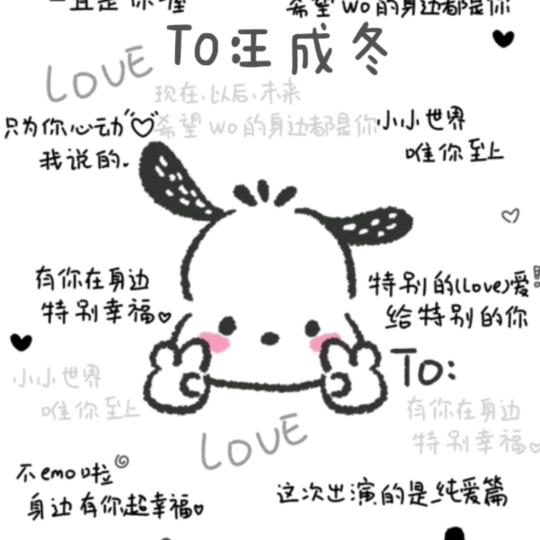 一直是你喔
希望wo的身边都是你
To汪成冬
LOVE
现在、以后、未来
希望wo的身边都是你
只为你心动"♡"
我说的.
小小世界
唯你至上
有你在身边
特别幸福
特别的(Love)爱
给特别的你
To:
小小世界
唯你至上
有你在身边
特别幸福
LOVE
不emo啦
身边有你超幸福
这次出演的是纯爱篇